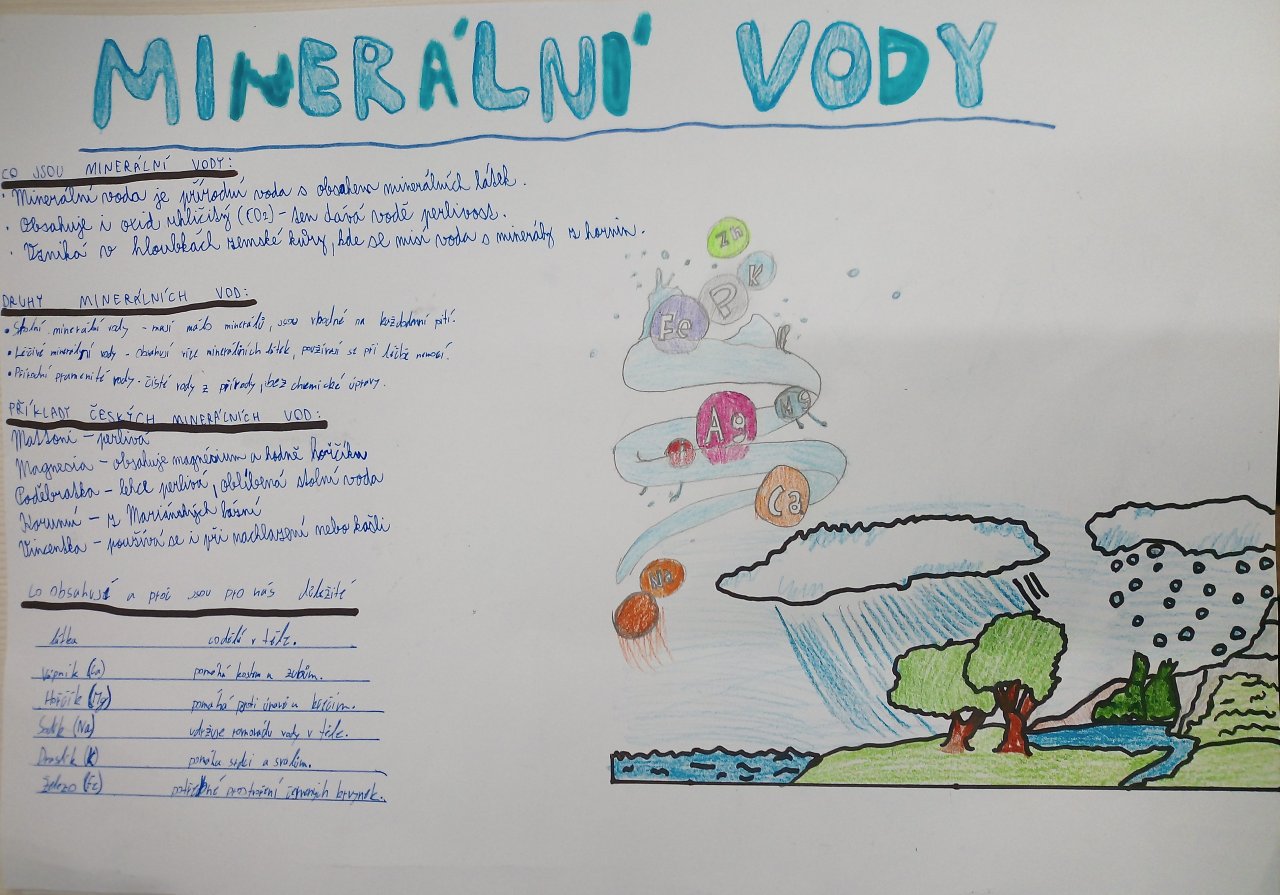 MINERÁLNÍ VODY
CO JSOU MINERÁLNÍ VODY:
• Minerální voda je přírodní voda s obsahem minerálních látek.
• Obsahuje i oxid uhličitý (CO2) - ten dává vodě perlivost.
• Vzniká v hloubkách zemské kůry, kde se mísí voda s minerály z hornin.
DRUHY MINERÁLNÍCH VOD:
• Stolní minerální vody - mají málo minerálů, jsou vhodné na každodenní pití.
• Léčivé minerální vody - obsahují více minerálních látek, používají se při léčbě nemocí.
• Přírodní pramenité vody - čisté vody z přírody, bez chemické úpravy.
PŘÍKLADY ČESKÝCH MINERÁLNÍCH VOD:
Mattoni - perlivá
Magnesia - obsahuje magnesium a hodně hořčíku
Poděbradka - lehce perlivá, oblíbená stolní voda
Korunní - z Mariánských lázní
Vincentka - používá se i při nachlazení nebo kašli
Co obsahují a proč jsou pro nás důležité
látka co dělá v těle.
Vápník (Ca) pomáhá kostem a zubům.
Hořčík (Mg) pomáhá proti únavě a křečím.
Sodík (Na) udržuje rovnováhu vody v těle.
Draslík (K) pomáhá srdci a svalům.
Železo (Fe) potřebné pro tvoření červených krvinek.
Zn
K
P
Fe
Mg
Ag
Ca
Na